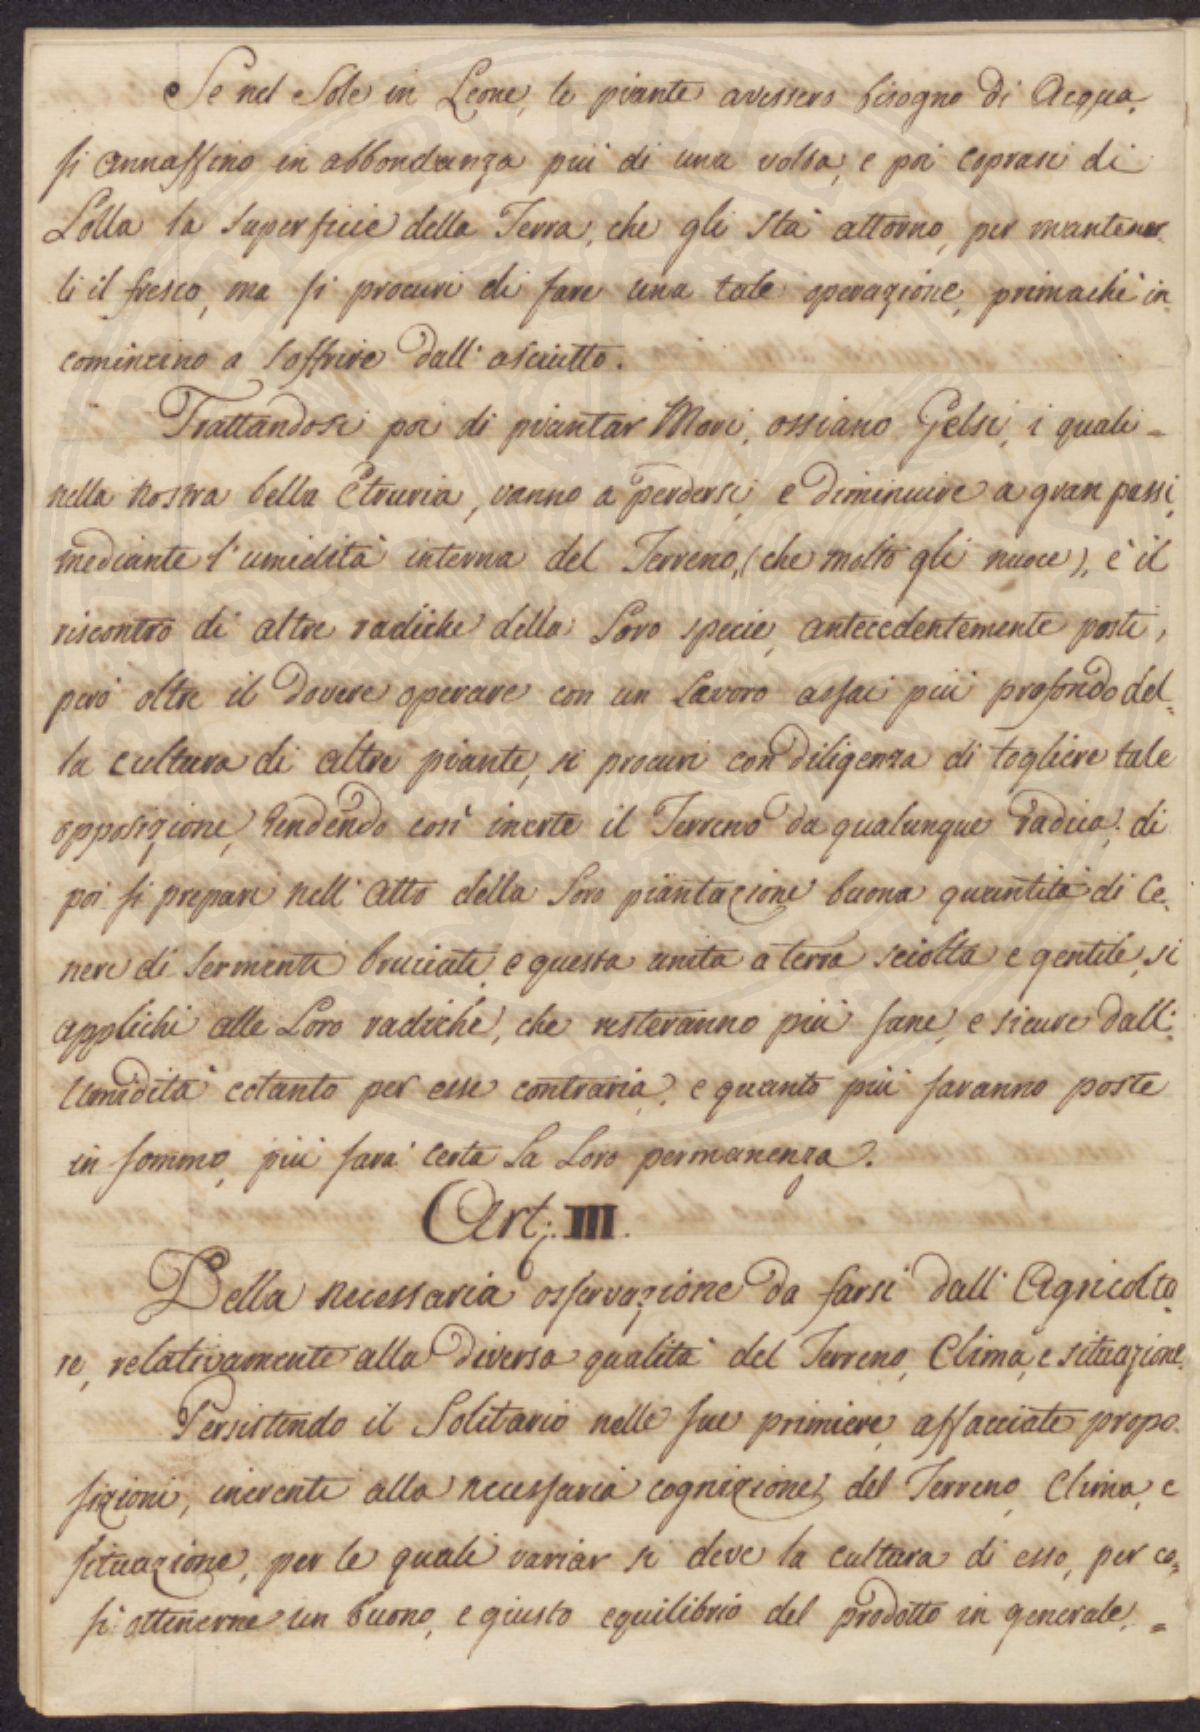 Se nel Sole in Leone, le piante avessero bisogno di Acqua,
si annaffino in abbondanza più di una volta, e poi coprasi di
Lolla la superficie della Terra, che gli stà attorno, per mantener-
li il fresco, ma si procuri di fare una tale operazione, primachè in-
comincino a soffrire dall'asciutto.
Trattandosi poi di piantar Mori, ossiano Gelsi, i quali =
nella nostra bella Etruria, vanno a perdersi, e diminuire a gran passi,
mediante l'umidità interna del Terreno, (che molto gli nuoce), è il
riscontro di altre radiche della loro specie, antecedentemente posti,
però oltre il dovere operare con un lavoro assai più profondo del=
la cultura di altre piante, si procuri con diligenza di togliere tale
opposizione, rendendo così inerte il Terreno da qualunque radica; di
poi si prepari nell'atto della loro piantazione buona quantità di Ce-
nere di sermenti bruciati, e questa unita a terra sciolta e gentile, si
applichi alle Loro radiche, che resteranno più sane, e sicure dall'
Umidità cotanto per esse contraria, e quanto più saranno poste
in sommo, più sarà certa la Loro permanenza.
Art: III.
Della necessaria osservazione da farsi dall'Agricolto-
re, relativamente alla diversa qualità del Terreno, Clima, e situazione.
Persistendo il Solitario nelle sue primiere affacciate propo-
sizioni, inerenti alla necessaria cognizione del Terreno, Clima, e
situazione, per le quali variar si deve la cultura di esso, per co-
sì ottenerne un buono, e giusto equilibrio del prodotto in generale, =